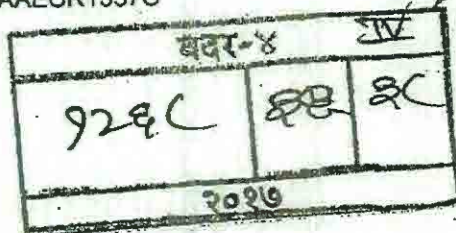 बदर-४ IV
१२६८ ३८
२०१७